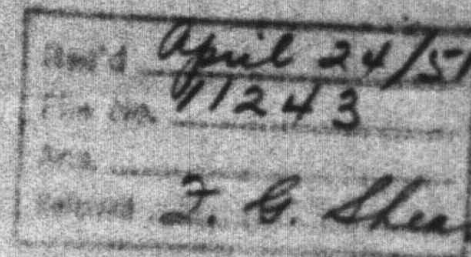 Rec'd April 24/51
File No. 11243
Ans.
Referred F. G. Shea